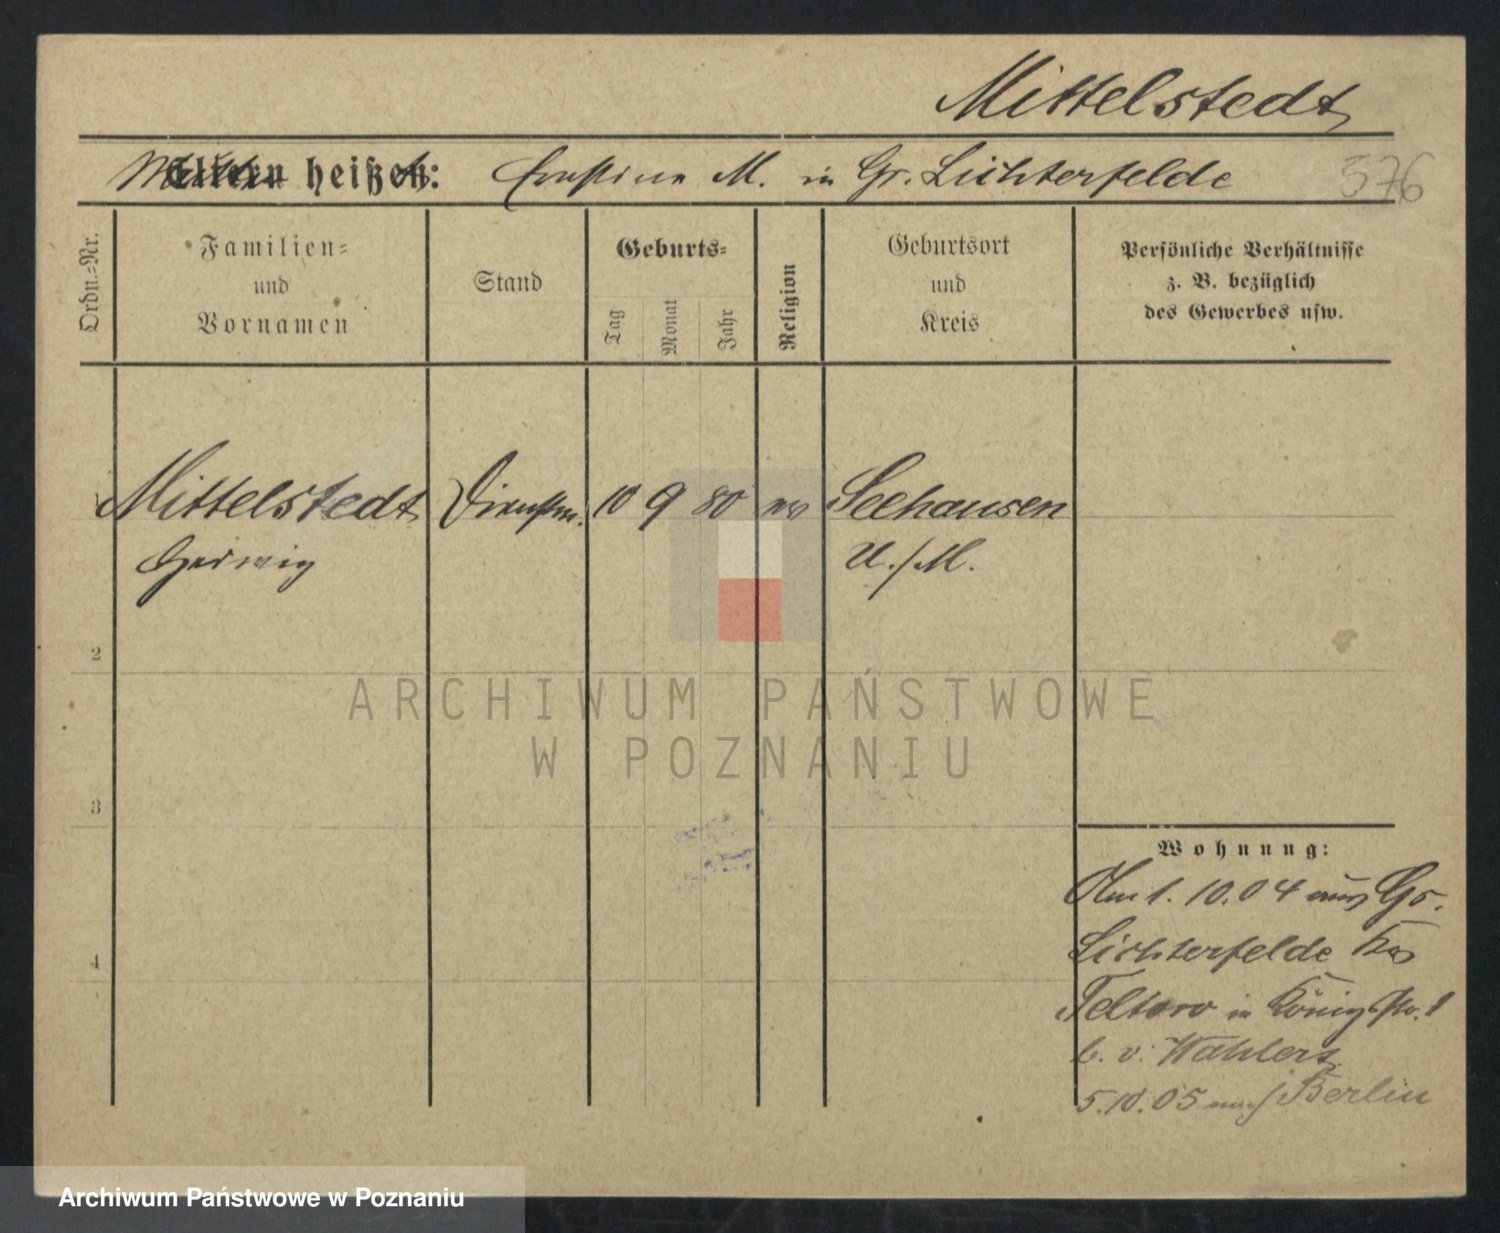 Mittelstedt
Mutter heißt: Ernstine M. in Gr. Lichterfelde
576
Ordn.=Nr.
Familien=
und
Vornamen
Stand
Geburts=
Tag
Monat
Jahr
Religion
Geburtsort
und
Kreis
Persönliche Verhältnisse
z. B. bezüglich
des Gewerbes usw.
Mittelstedt Dienstm. 10 9 80 ev Seehausen
Hedwig U./M.
2
ARCHIWUM PAŃSTWOWE
W POZNANIU
3
4
Wohnung:
Am 1. 10. 04 aus Gr.
Lichterfelde Krs
Teltow in Königstr. 1
b. v. Wahlert
5.10.05 nach Berlin
Archiwum Państwowe w Poznaniu